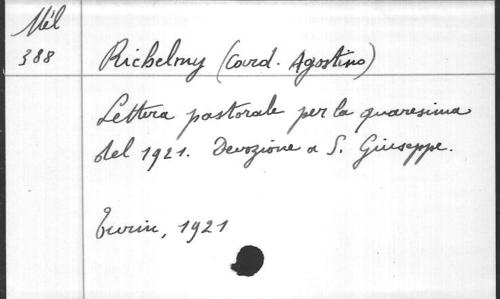 Mél
388
Richelmy (Card. Agostino)
Lettera pastorale per la quaresima
del 1921. Devozione a S. Giuseppe.
Turin, 1921